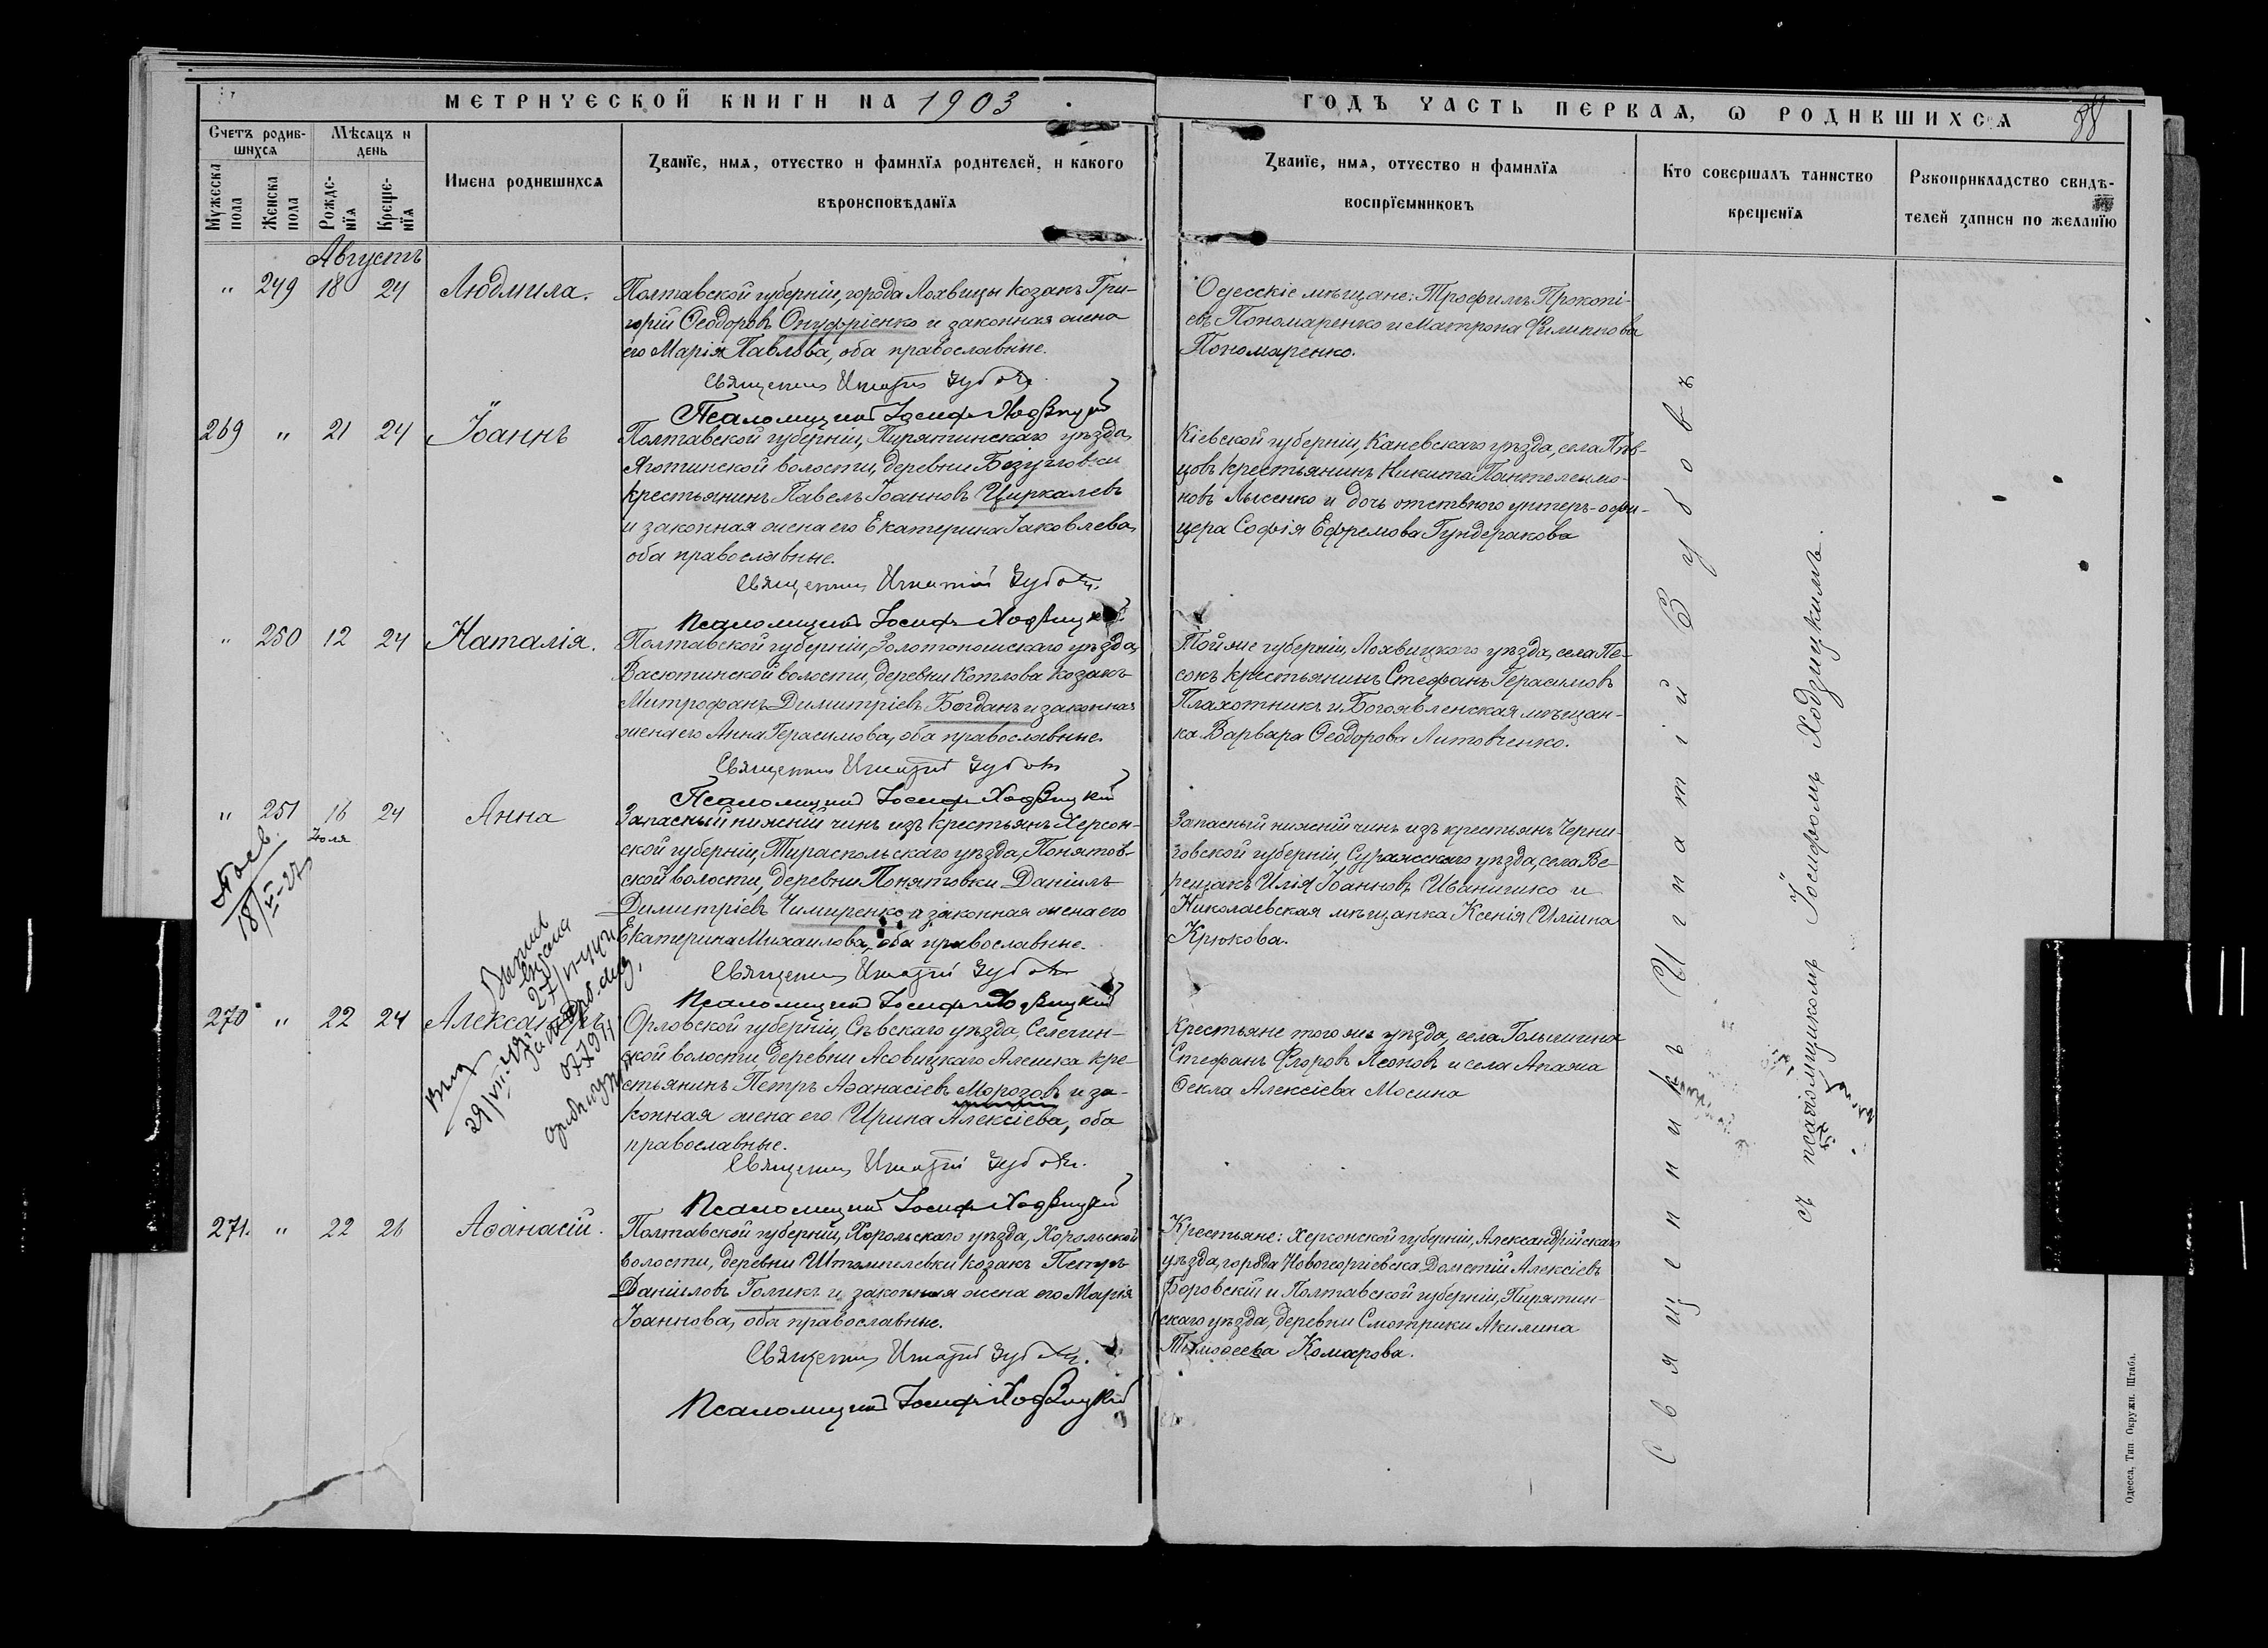 МЕТРИЧЕСКОЙ КНИГИ НА 1903
ГОДЪ ЧАСТЬ ПЕРВАЯ, Ѡ РОДИВШИХСЯ
Счетъ родив-
шихся
Мѣсяцъ и
день
Мужеска
пола
Женска
пола
Рожде-
нїя
Креще-
нїя
Имена родившихся
Званїе, имя, отчество и фамилїя родителей, и какого
вѣроисповѣданїя
Званїе, имя, отчество и фамилїя
воспрїемниковъ
Кто совершалъ таинство
крещенїя
Рукоприкладство свидѣ-
телей записи по желанїю
Августъ
" 249 18 24 Людмила.
Полтавской губерніи, города Лохвицы козакъ Гри-
горій Ѳеодоровъ Онуфріенко и законная жена
его Марія Павлова, оба православные.
Священникъ Игнатій Зубовъ
Псаломщикъ Іосифъ Ходзицкій
Одесскіе мѣщане: Трофимъ Прокопі-
евъ Пономаренко и Матрона Филиппова
Пономаренко.
269 " 21 24 Іоаннъ
Полтавской губерніи, Пирятинскаго уѣзда,
Яготинской волости, деревни Безугловки
крестьянинъ Павелъ Іоанновъ Циркалевъ
и законная жена его Екатерина Іаковлева,
оба православные.
Священникъ Игнатій Зубовъ.
Псаломщикъ Іосифъ Ходзицкій
Кіевской губерніи, Каневскаго уѣзда, села Пѣв-
цовъ крестьянинъ Никита Пантелеимо-
новъ Лысенко и дочь отствного унтеръ-офи-
цера Софія Ефремова Гундеракова
" 250 12 24 Наталія.
Полтавской губерніи, Золотоношскаго уѣзда,
Васютинской волости, деревни Котлова козакъ
Митрофанъ Димитріевъ Богданъ и законная
жена его Анна Герасимова, оба православные.
Священникъ Игнатій Зубовъ
Псаломщикъ Іосифъ Ходзицкій
Той же губерніи, Лохвицкаго уѣзда, села Пе-
сокъ крестьянинъ Стефанъ Герасимовъ
Плахотникъ и Богоявленская мѣщан-
ка Варвара Ѳеодорова Литовченко.
" 251 16 24 Анна
Іюля
Запасный нижній чинъ изъ крестьянъ Херсон-
ской губерніи, Тираспольскаго уѣзда, Понятов-
ской волости, деревни Понятовки Даніилъ
Димитріевъ Чимиренко и законная жена его
Екатерина Михаилова, оба православные.
Священникъ Игнатій Зубовъ
Псаломщикъ Іосифъ Ходзицкій
Запасный нижній чинъ изъ крестьянъ Черни-
говской губерніи, Суражскаго уѣзда, села Ве-
рещакъ Илія Іоанновъ Иваничко и
Николаевская мѣщанка Ксенія Иліина
Крюкова.
270 " 22 24 Александръ
Орловской губерніи, Сѣвскаго уѣзда, Селечин-
ской волости деревни Асовицкаго Алешка кре-
стьянинъ Петръ Аѳанасіевъ Морозовъ и за-
конная жена его Ирина Алексіева, оба
православные.
Священникъ Игнатій Зубовъ.
Псаломщикъ Іосифъ Ходзицкій
Крестьяне того же уѣзда, села Голышина
Стефанъ Ѳлоровъ Леоновъ и села Апажа
Ѳекла Алексіева Мосина
271. " 22 26 Аѳанасій.
Полтавской губерніи, Хорольскаго уѣзда, Хорольской
волости, деревни Штомпелевки козакъ Петръ
Даніиловъ Голикъ и законная жена его Марія
Іоаннова, оба православные.
Священникъ Игнатій Зубовъ.
Псаломщикъ Іосифъ Ходзицкій
Крестьяне: Херсонской губерніи, Александрійскаго
уѣзда, города Новогеоргіевска Дометій Алексіевъ
Боровскій и Полтавской губерніи, Пирятин-
скаго уѣзда, деревни Смотрики Акилина
Тимоѳеева Комарова.
Священникъ Игнатій Зубовъ
съ псаломщикомъ Іосифомъ Ходзицкимъ.
Одесса, Тип. Окружн. Штаба.